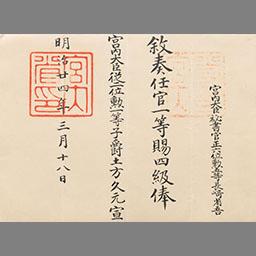 宮內大臣秘書官正六位勲等長崎省吾
敍奏任官一等賜四級俸
宮內大臣從二位勲一等子爵土方久元宣
明治廿四年三月十八日